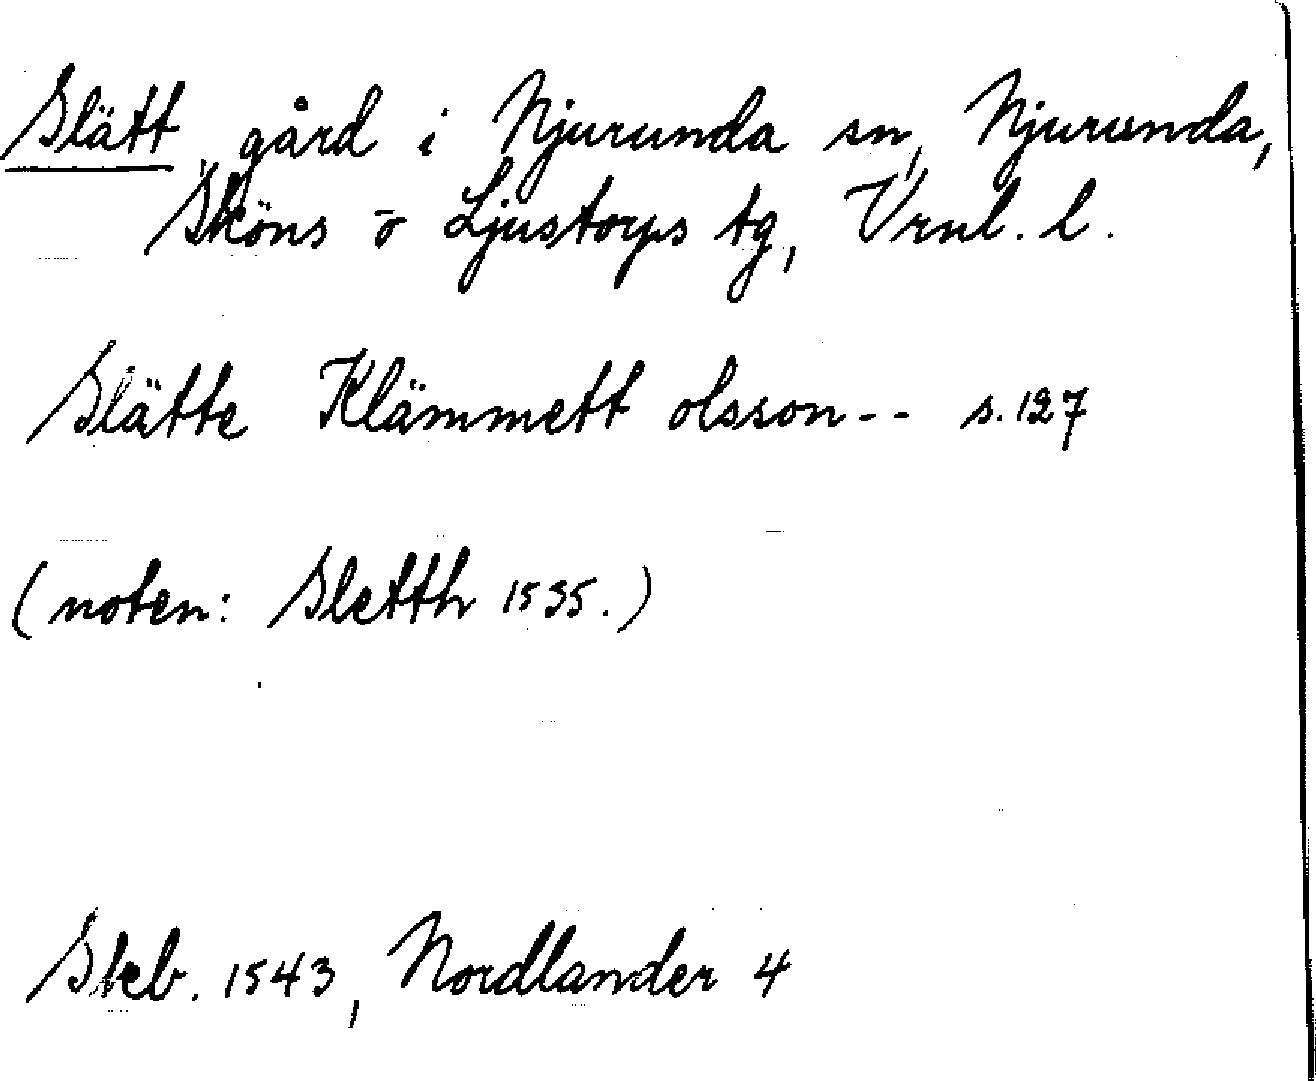 Slätt gård i Njurunda sn, Njurunda,
Sköns o Ljustorps tg, Vrnl. l.
Slätte Klämmett olsson -- s. 127
(noten: Sletth 1535.)
Skb. 1543, Nordlander 4